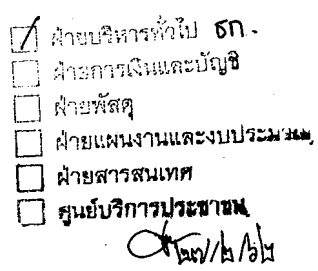 ฝ่ายบริหารทั่วไป ธก.
ฝ่ายการเงินและบัญชี
ฝ่ายพัสดุ
ฝ่ายแผนงานและงบประมาณ
ฝ่ายสารสนเทศ
ศูนย์บริการประชาชน
๒๗/๒/๖๒